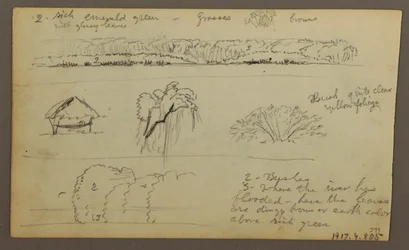 2 rich emerald green - Grasses brown
with glossy leaves
2
3
Bush quite clear
yellow foliage
2
3
2 - Bushes
3 - Where the river has
flooded - have the leaves
are dingy brown or earth color
above rich green
1917.4.805